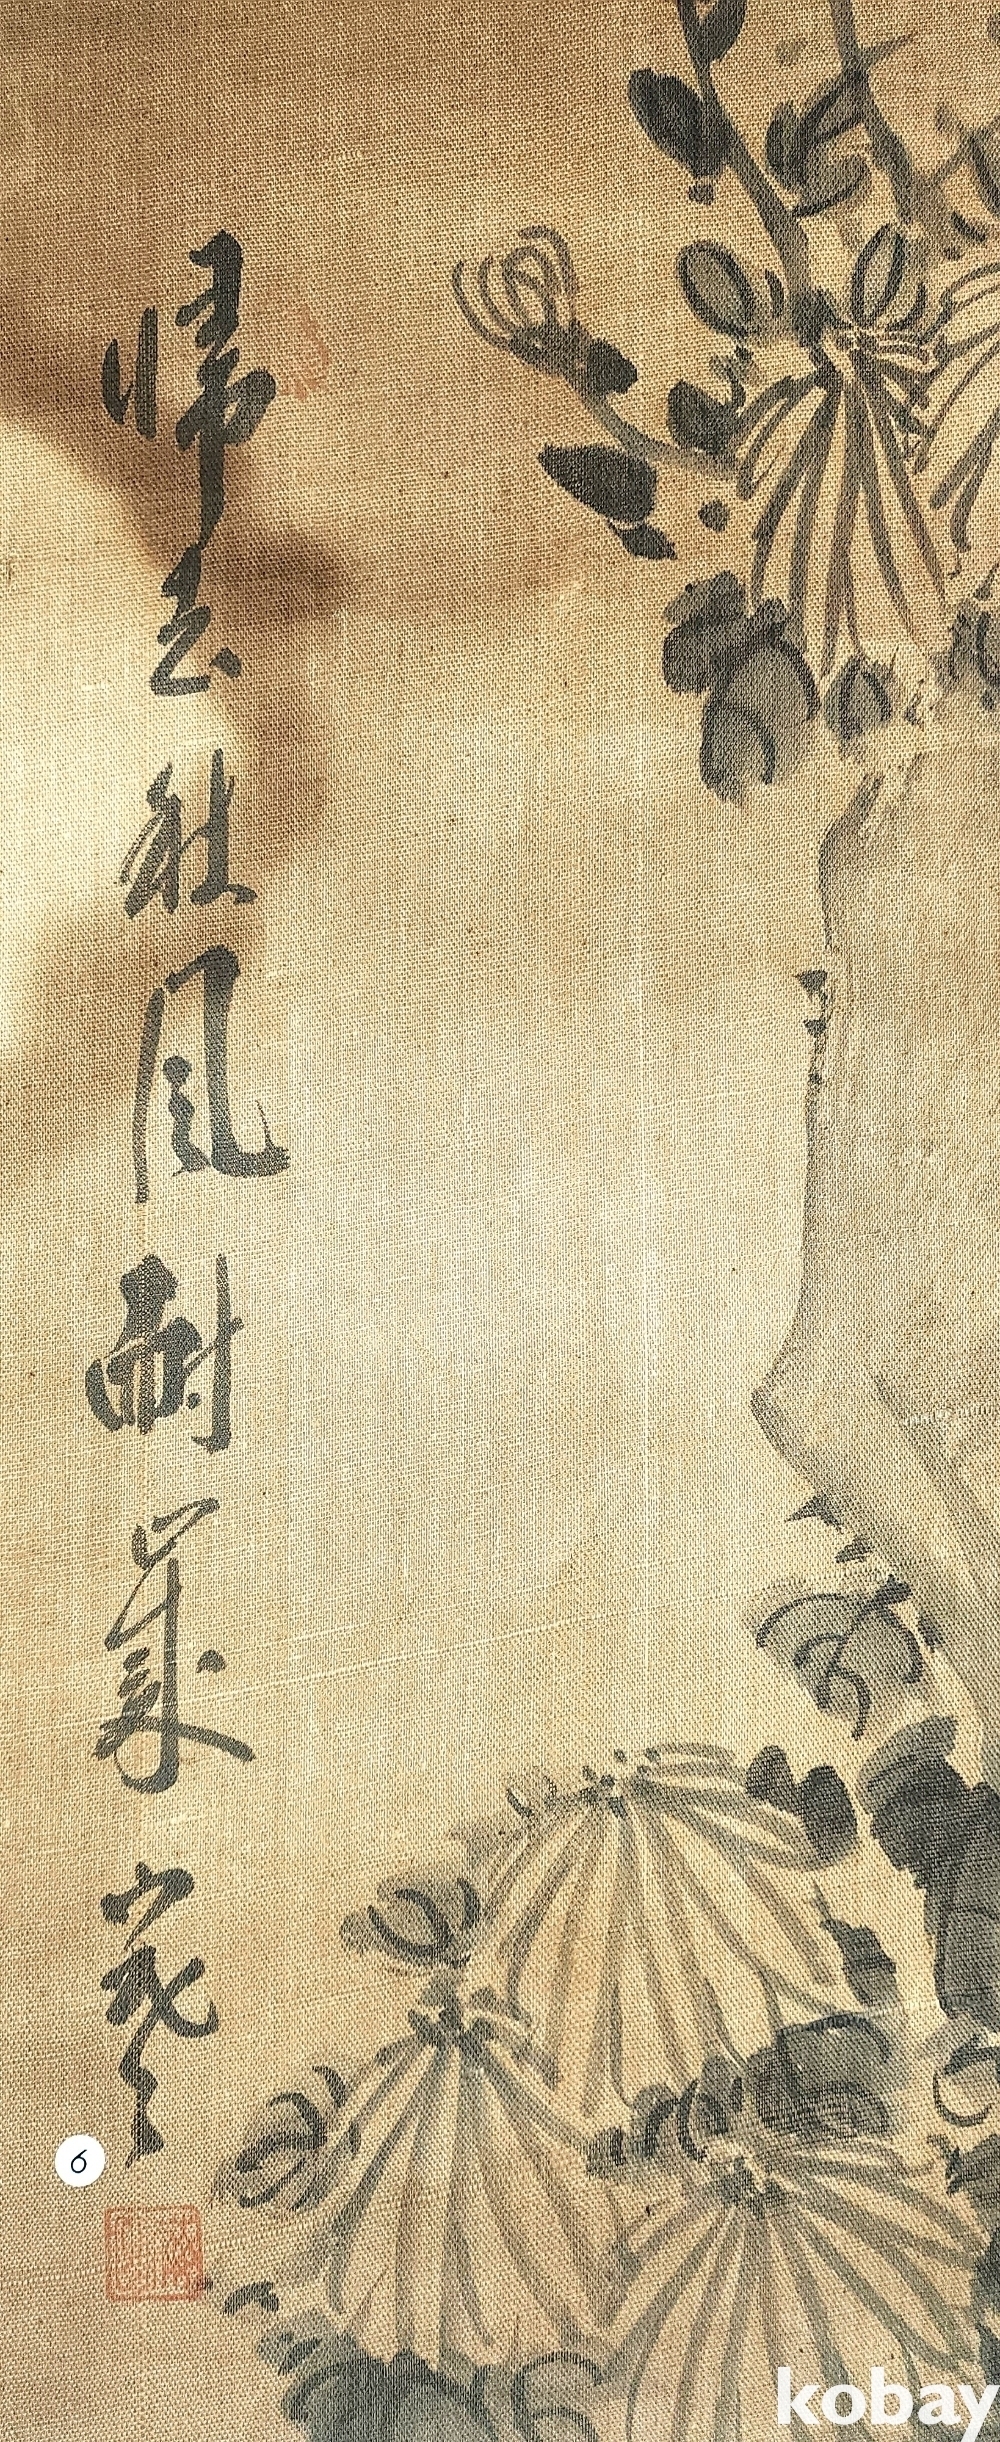 歸去秋風耐歲寒
6
kobay